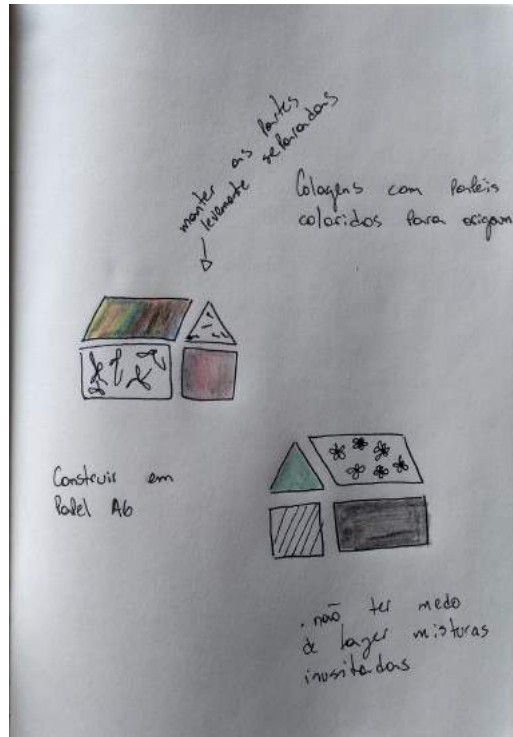 manter as partes
levemente separadas
Colagens com papéis
coloridos para origami
Construir em
Papel A6
. não ter medo
de fazer misturas
inusitadas